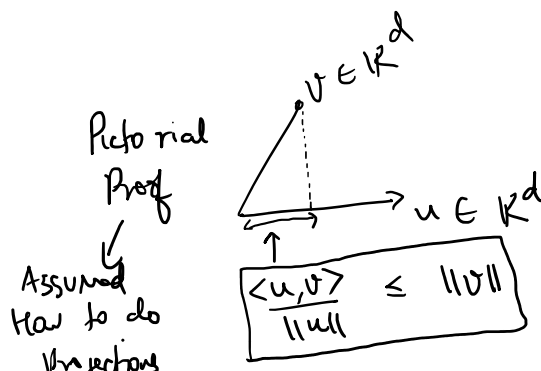 v ∈ ℝ^d
Pictorial
Proof
u ∈ ℝ^d
Assumed
How to do
Projections
<u,v> / ||u|| ≤ ||v||